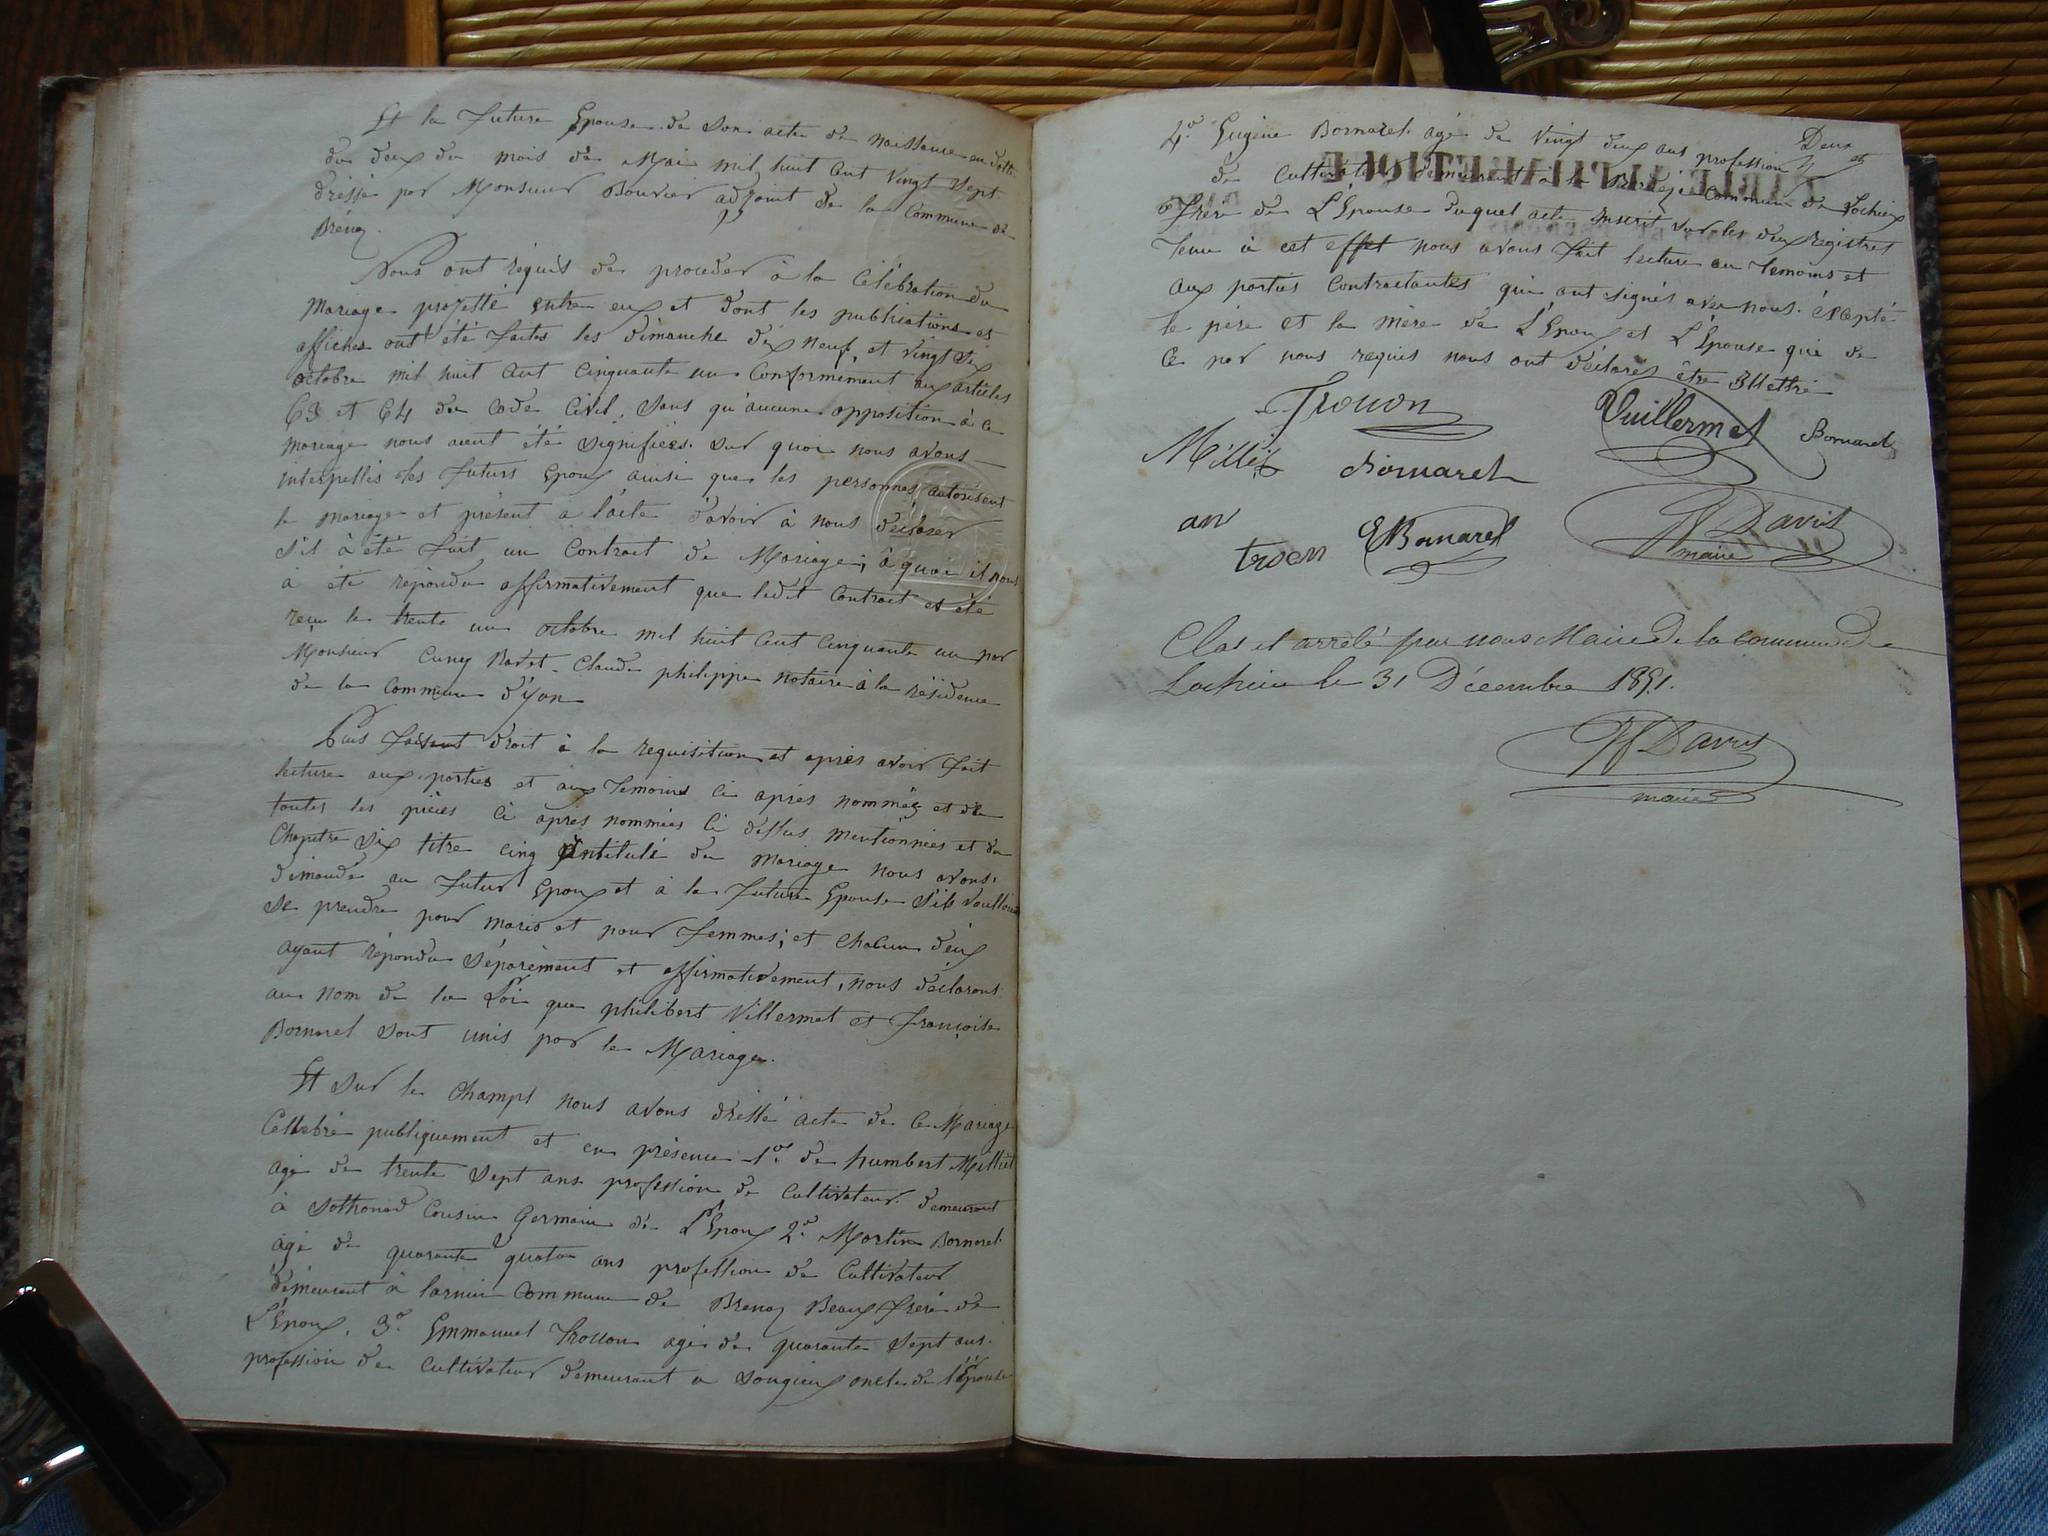 Et la future Epouse de son acte de naissance en datte
du deux du mois de Mai mil huit cent vingt sept
dressé par Monsieur Bouvier adjoint de la Commune de
Brénaz
Nous ont requis de proceder à la Célébration du
Mariage projetté entre eux et dont les publications et
affiches ont été faites les dimanche dix neuf, et vingt six
octobre mil huit cent cinquante un Conformement aux articles
63 et 64 du Code Civil, sans qu'aucune opposition à ce
mariage nous aient été signifiées. sur quoi nous avons
interpellés les futurs Epoux ainsi que les personnes autorisant
le mariage et présent a l'acte d'avoir à nous déclarer
s'il à été fait un Contract de Mariage; à quoi il nous
à été répondu affirmativement que ledit Contract et été
reçu le trente un octobre mil huit cent cinquante un par
Monsieur Cuney Ravet Claude philippe notaire à la résidence
de la Commune d'Yon
Puis faisant droit à la requisition et après avoir fait
lecture aux parties et aux Temoins ci après nommés et de
toutes les pièces ci après nommées ci dessus mentionnées et du
Chapitre six titre cinq intitulé du mariage nous avons
demandé au futur Epoux et à la future Epouse s'ils voulloient
se prendre pour maris et pour femmes; et chacun d'eux
ayant répondu séparement et affirmativement, nous déclarons
au nom de la Loi que philibert Villermet et françoise
Bornarel sont unis par le Mariage.
Et sur le champs nous avons dressé acte de ce Mariage
Cellebré publiquement et en présence 1º de humbert Milliet
agé de trente sept ans profession de Cultivateur demeurant
à Sothonod Cousin Germain de L'Epoux 2º Martin Bornarel
agé de quarante quatre ans profession de Cultivateur
demeurant à Commune de Brenaz Beaux frere de
L'Epoux, 3º Emmanuel Trouon agé de quarante sept ans
profession de Cultivateur demeurant a Songieux oncle de l'Epouse
Deux et
4º Eugène Bornarel agé de vingt deux ans profession
de Cultivateur demeurant à Commune de Lochieux
frère de L'Epouse duquel acte inscrit sur les deux registres
tenu à cet effet nous avons fait lecture au Temoins et
aux parties Contractantes qui ont signés avec nous. éxcepté
le père et la mère de L'Epoux et L'Epouse qui de
ce par nous requis nous ont déclarés être Illettré
Trouon
Vuillermet Bornarel
Milliet Bornarel
an
troen EBornarel
Davit
maire
Clos et arrêlé par nous Maire de la commune de
Lochieu le 31 Décembre 1851.
Davit
maire